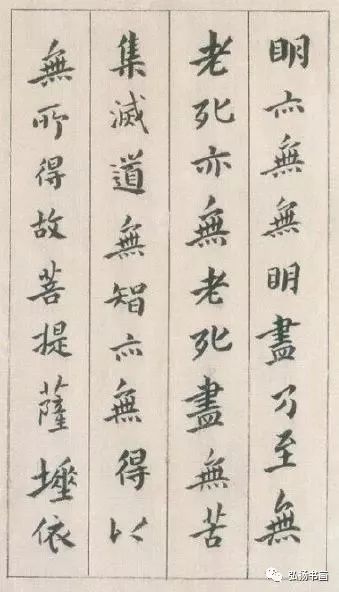 明亦無無明盡乃至無
老死亦無老死盡無苦
集滅道無智亦無得以
無所得故菩提薩埵依
弘扬书画